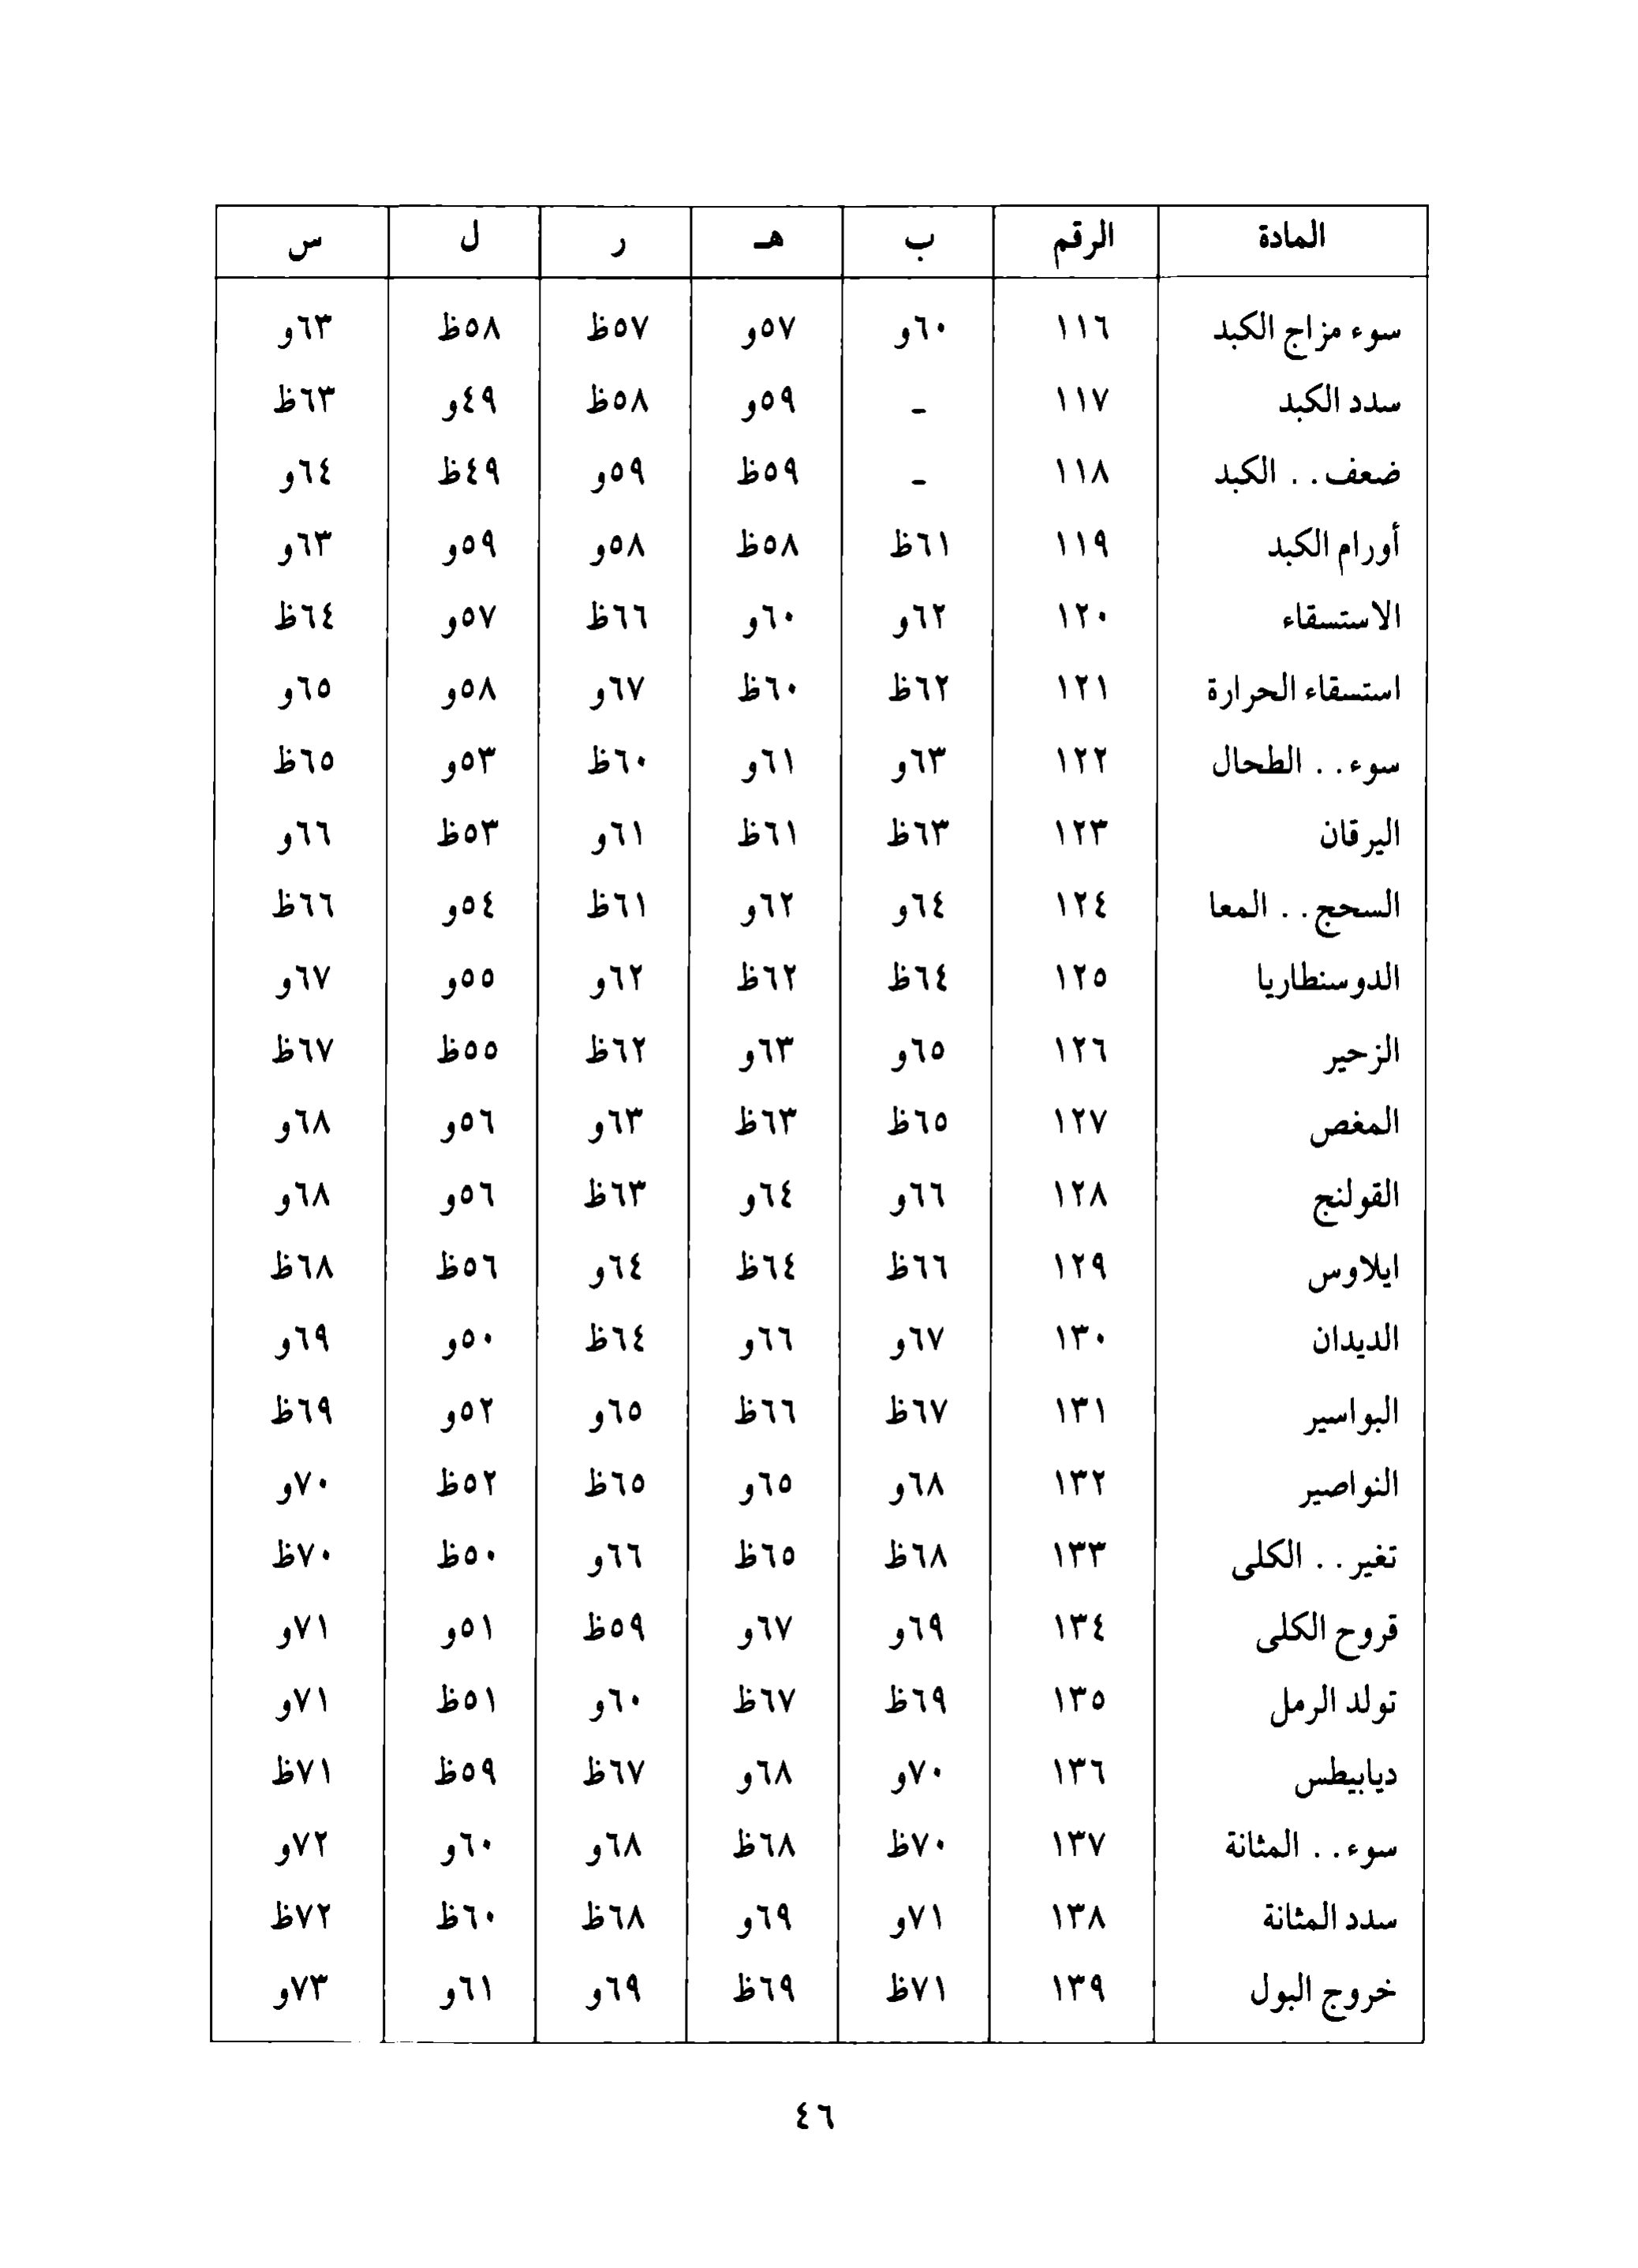 المادة الرقم ب هـ ر ل س
سوء مزاج الكبد ١١٦ ٦٠و ٥٧و ٥٧ظ ٥٨ظ ٦٣و
سدد الكبد ١١٧ - ٥٩و ٥٨ظ ٤٩و ٦٣ظ
ضعف . . الكبد ١١٨ - ٥٩ظ ٥٩و ٤٩ظ ٦٤و
أورام الكبد ١١٩ ٦١ظ ٥٨ظ ٥٨و ٥٩و ٦٣و
الاستسقاء ١٢٠ ٦٢و ٦٠و ٦٦ظ ٥٧و ٦٤ظ
استسقاء الحرارة ١٢١ ٦٢ظ ٦٠ظ ٦٧و ٥٨و ٦٥و
سوء . . الطحال ١٢٢ ٦٣و ٦١و ٦٠ظ ٥٣و ٦٥ظ
اليرقان ١٢٣ ٦٣ظ ٦١ظ ٦١و ٥٣ظ ٦٦و
السحج . . المعا ١٢٤ ٦٤و ٦٢و ٦١ظ ٥٤و ٦٦ظ
الدوسنطاريا ١٢٥ ٦٤ظ ٦٢ظ ٦٢و ٥٥و ٦٧و
الزحير ١٢٦ ٦٥و ٦٣و ٦٢ظ ٥٥ظ ٦٧ظ
المغص ١٢٧ ٦٥ظ ٦٣ظ ٦٣و ٥٦و ٦٨و
القولنج ١٢٨ ٦٦و ٦٤و ٦٣ظ ٥٦و ٦٨و
ايلاوس ١٢٩ ٦٦ظ ٦٤ظ ٦٤و ٥٦ظ ٦٨ظ
الديدان ١٣٠ ٦٧و ٦٦و ٦٤ظ ٥٠و ٦٩و
البواسير ١٣١ ٦٧ظ ٦٦ظ ٦٥و ٥٢و ٦٩ظ
النواصير ١٣٢ ٦٨و ٦٥و ٦٥ظ ٥٢ظ ٧٠و
تغير . . الكلى ١٣٣ ٦٨ظ ٦٥ظ ٦٦و ٥٠ظ ٧٠ظ
قروح الكلى ١٣٤ ٦٩و ٦٧و ٥٩ظ ٥١و ٧١و
تولد الرمل ١٣٥ ٦٩ظ ٦٧ظ ٦٠و ٥١ظ ٧١و
ديابيطس ١٣٦ ٧٠و ٦٨و ٦٧ظ ٥٩ظ ٧١ظ
سوء . . المثانة ١٣٧ ٧٠ظ ٦٨ظ ٦٨و ٦٠و ٧٢و
سدد المثانة ١٣٨ ٧١و ٦٩و ٦٨ظ ٦٠ظ ٧٢ظ
خروج البول ١٣٩ ٧١ظ ٦٩ظ ٦٩و ٦١و ٧٣و
٤٦